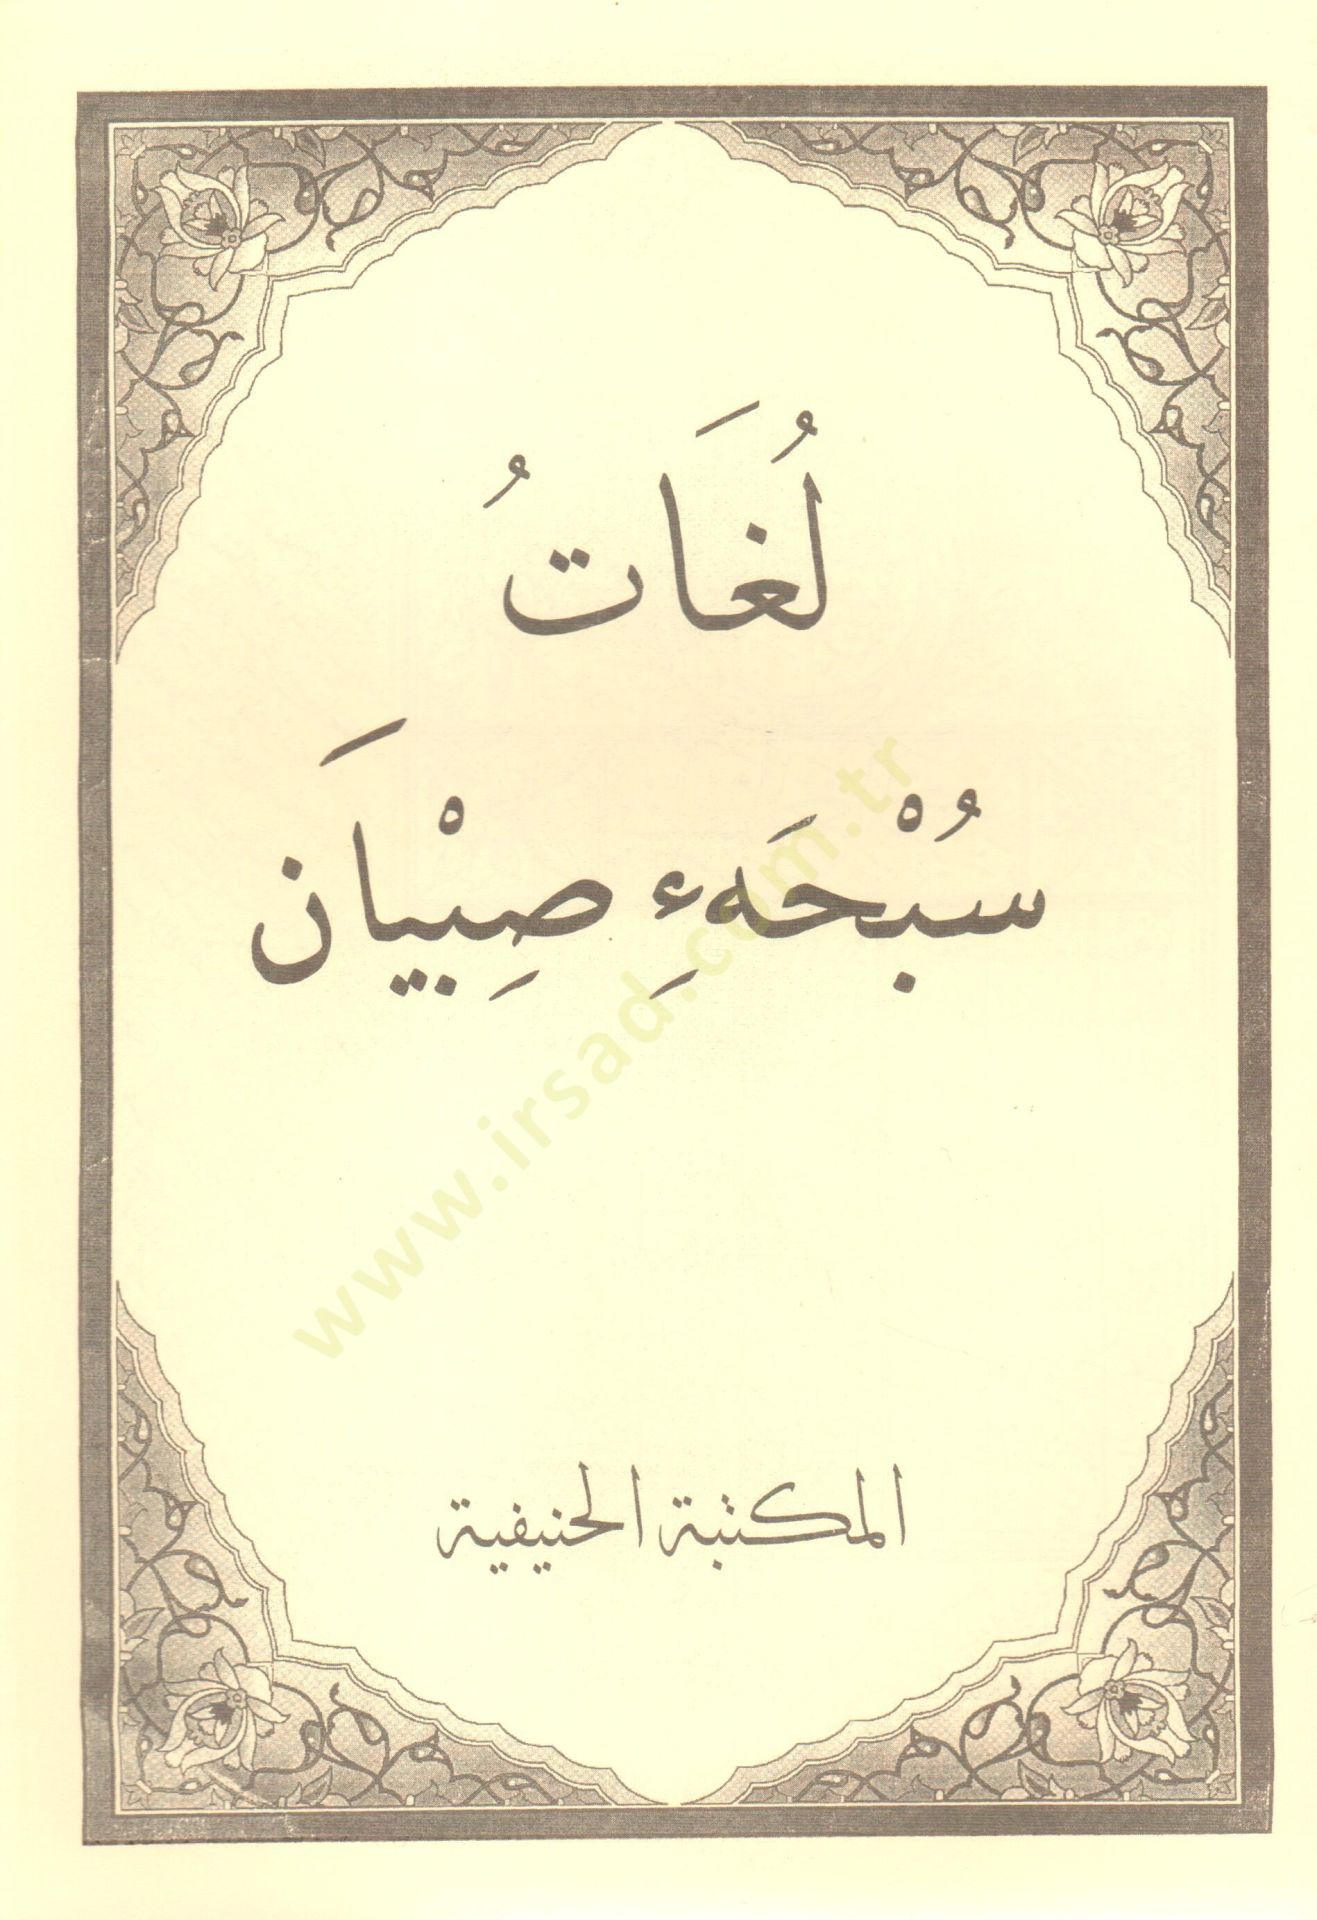 لُغَاتُ
سُبْحَهءِ صِبْيَانَ
www.irsad.com.tr
المكتبة الحنيفية